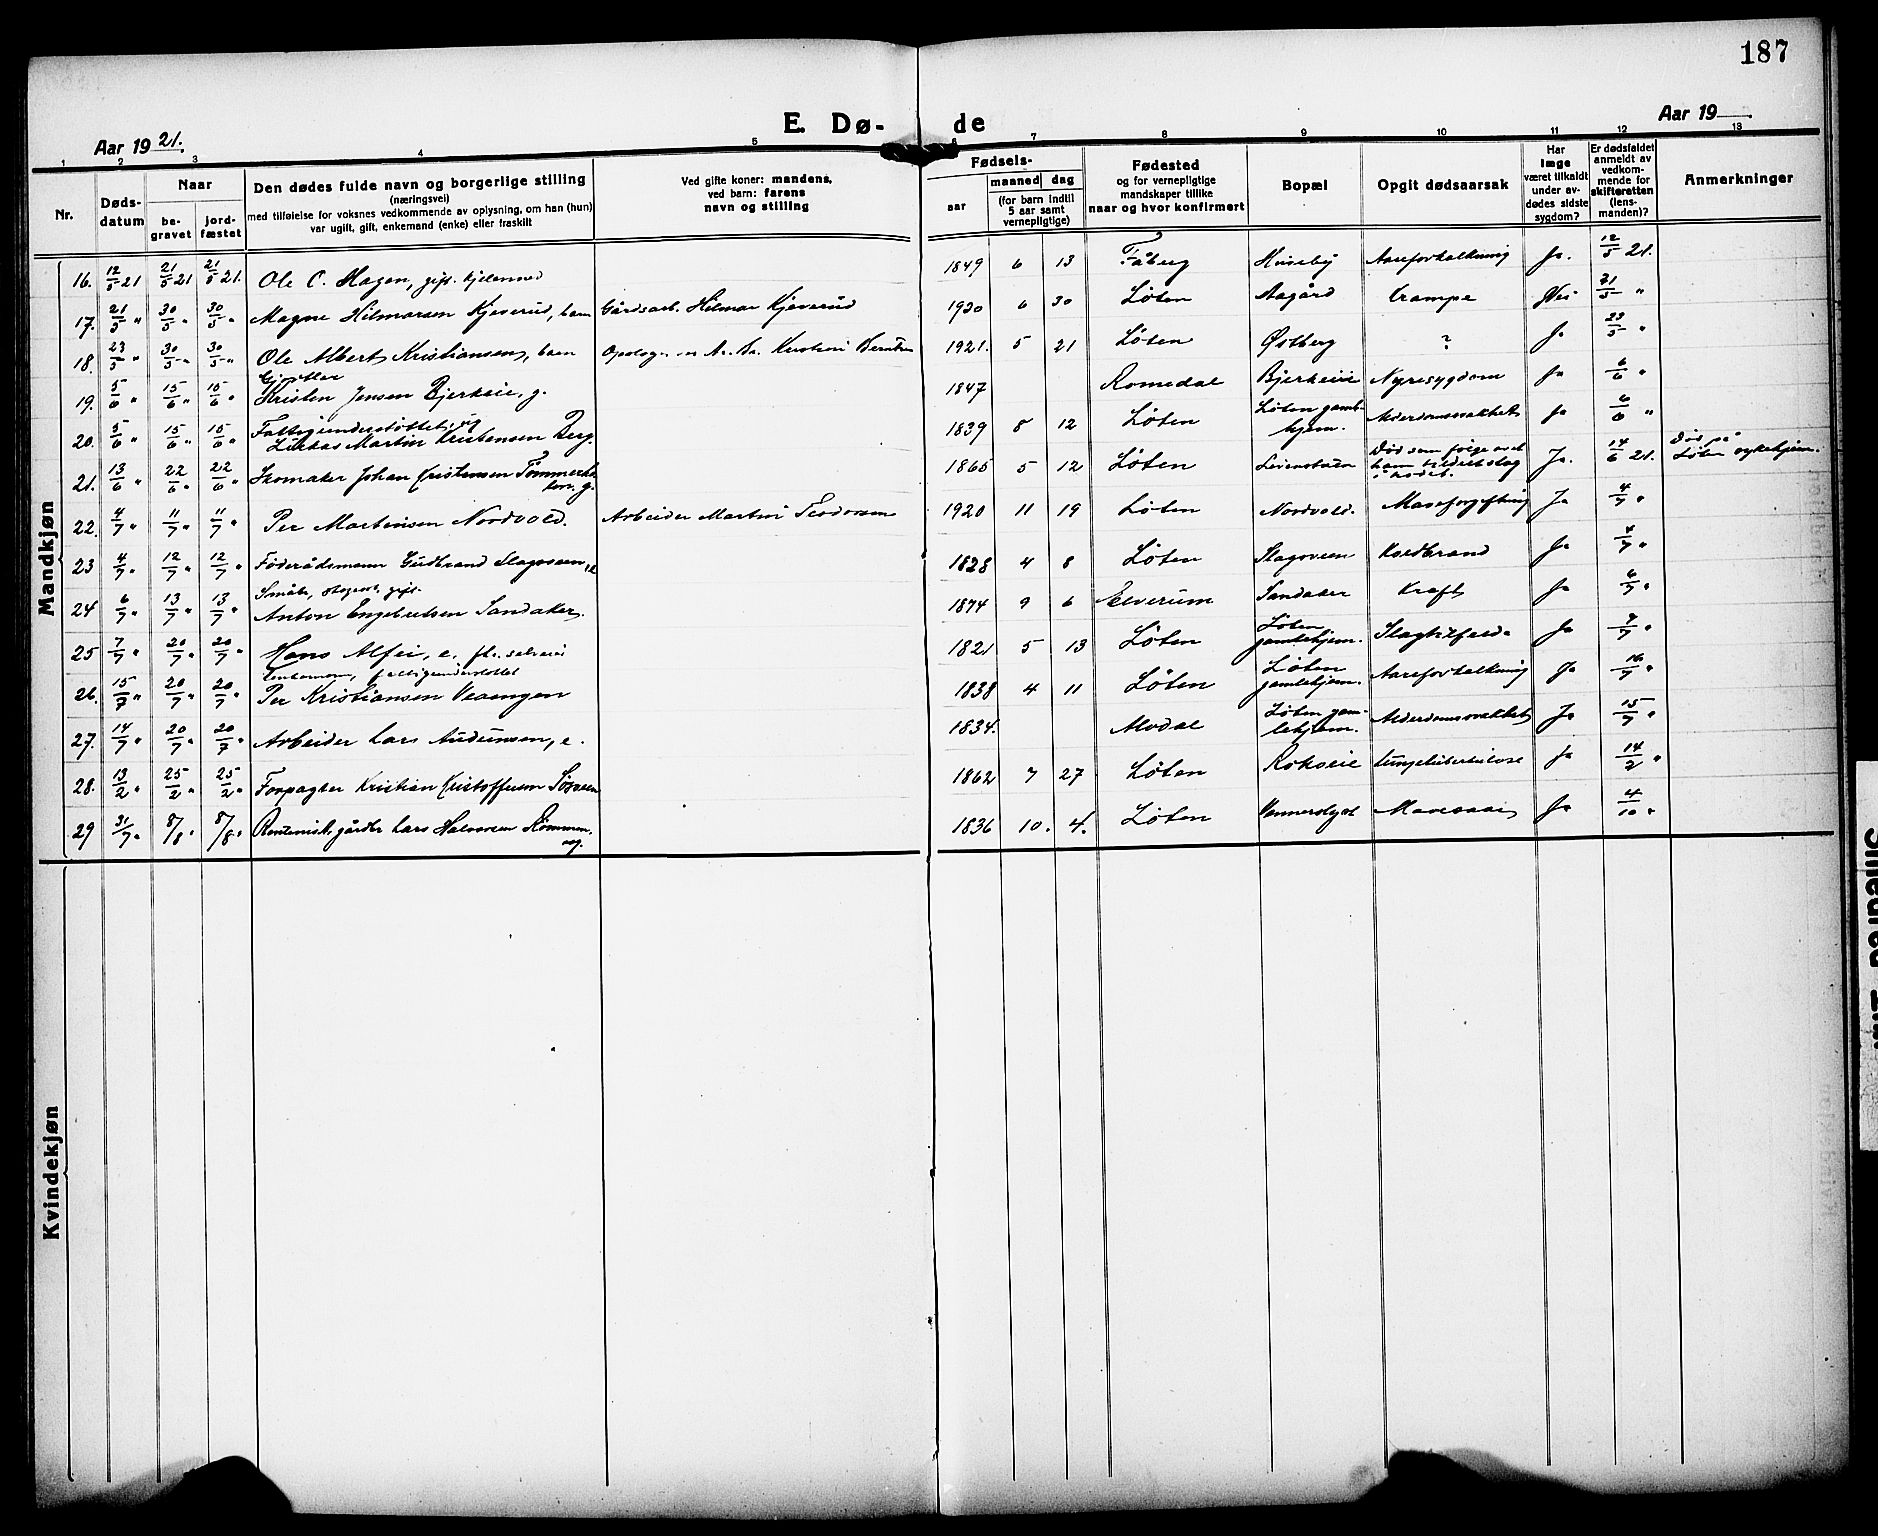 187
E. Dø-de
Aar 1921.
Aar 19
1 2 3 4 5 6 7 8 9 10 11 12 13
Nr.
Døds-
datum
Naar
be-
gravet
jord-
fæstet
Den dødes fulde navn og borgerlige stilling
(næringsvei)
med tilføielse for voksnes vedkommende av oplysning, om han (hun)
var ugift, gift, enkemand (enke) eller fraskilt
Ved gifte koner: mandens,
ved barn: farens
navn og stilling
Fødsels-
aar
maaned dag
(for barn indtil
5 aar samt
vernepligtige)
Fødested
og for vernepligtige
mandskaper tillike
naar og hvor konfirmert
Bopæl
Opgit dødsaarsak
Har
læge
været tilkaldt
under av-
dødes sidste
sygdom?
Er dødsfaldet
anmeldt av
vedkom-
mende for
skifteretten
(lens-
manden)?
Anmerkninger
Mandkjøn
16. 12/5 21 21/5 21 21/5 21. Ole C. Hagen, gift. 1849 6 13 Fåberg Huseby Aareforkalkning Ja. 12/5 21.
17. 21/5 " 30/5 " 30/5 " Magne Hilmarsen Kjeverud, barn Gårdsarb. Hilmar Kjeverud 1920 6 30 Løten Aagård Krampe Nei 21/5 "
18. 23/5 " 30/5 " 30/5 " Ole Albert Kristiansen, barn 1921. 5 21 Løten Østberg ? Ja 23/5 "
19. 5/6 " 15/6 " 15/6 " Kristen Jensen Bjerkeie, g. 1847 Romedal Bjerkeie Nyresygdom Ja 6/6 "
20. 5/6 " 15/6 " 15/6 " Fattigunderstøttet, ug
Lukas Martin Kristensen Berg. 1839 8 12 Løten Løten gamle-
hjem. Alderdomssvakhet Ja 6/6 "
21. 13/6 " 22/6 " 22/6 " Skomaker Johan Kristensen
g. 1865 5 12 Løten Død som følge av et
i hodet. Ja. 14/6 21. Død på
Løten sykehjem.
22. 4/7 " 11/7 " 11/7 " Per Martinsen Nordvold. Arbeider Martin Teodorsen 1920 11 19 Løten Nordvold. Ja 4/7 "
23 4/7 " 12/7 " 12/7 " Føderådsmann Gudbrand Slagsveen, e 1828 4 8 Løten Slagsveen Koldbrand Ja 4/7 "
24 6/7 " 13/7 " 13/7 " gift.
Anton Engebretsen Sandaker. 1874 9 6 Elverum Sandaker Kræft Ja 6/7 "
25 7/7 " 20/7 " 20/7 " Hans Alfei, e. 1821 5 13 Løten Løten
gamlehjem. Slagtilfælde Ja 7/7 "
26. 15/7 " 20/7 " 20/7 " fattigunderstøttet
Per Kristiansen Veaengen 1838 4 11 Løten Løten
gamlehjem. Aareforkalkning Ja 16/7 "
27. 14/7 " 20/7 " 20/7 " Arbeider Lars Audunsen, e. 1834. Alvdal Løten gam-
lehjem. Alderdomssvakhet Ja 15/7 "
28. 13/2 " 25/2 " 25/2 " Forpagter Kristian Kristoffersen 1862 7 27 Løten Rokseie Lungetuberkulose Ja 14/2 "
29 31/7 " 8/8 " 8/8 " Lars Halvorsen
ug. 1836 10. 4. Løten Ja 4/10 "
Kvindekjøn